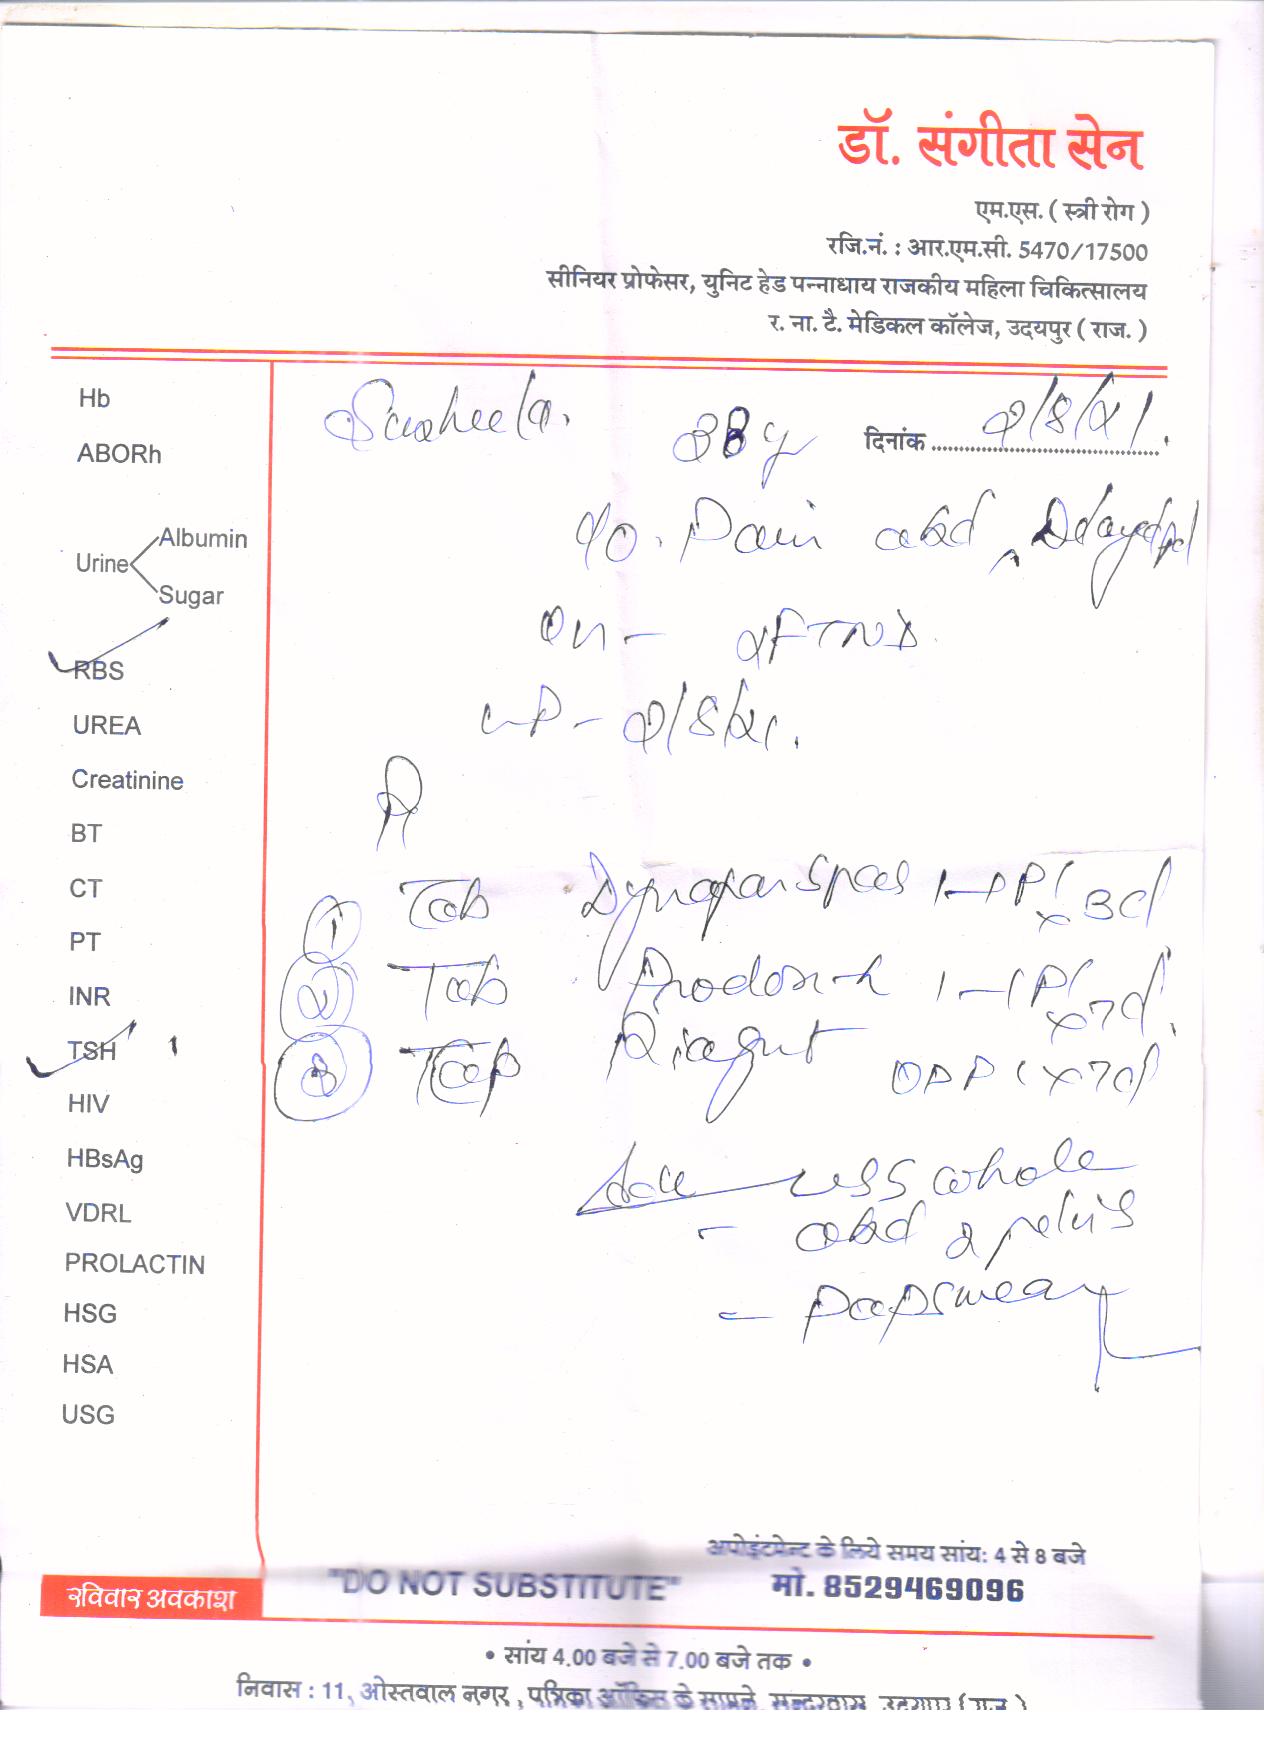 डॉ. संगीता सेन
एम.एस. ( स्त्री रोग )
रजि.नं. : आर.एम.सी. 5470/17500
सीनियर प्रोफेसर, युनिट हेड पन्नाधाय राजकीय महिला चिकित्सालय
र. ना. टै. मेडिकल कॉलेज, उदयपुर ( राज. )
Susheela. 38y दिनांक 2/8/21.
Hb
ABORh
Pain abd, Delayed
Urine Albumin
Sugar
OH - 2FTND
RBS
LMP - 2/8/21.
UREA
Creatinine
BT
CT
PT
INR
TSH
HIV
HBsAg
VDRL
PROLACTIN
HSG
HSA
USG
1 Tab Dynapar Spas 1-1 PC x 3d
2 Tab 1-1 PC x 7d.
3 Cap OD PC x 7d
Adv USS whole
- abd & pelvis
- Papsmear
अपोइंटमेन्ट के लिये समय सांय: 4 से 8 बजे
"DO NOT SUBSTITUTE" मो. 8529469096
रविवार अवकाश
• सांय 4.00 बजे से 7.00 बजे तक •
निवास : 11, ओस्तवाल नगर , पत्रिका ऑफिस के सामने, सुन्दरवास, उदयपुर (राज.)